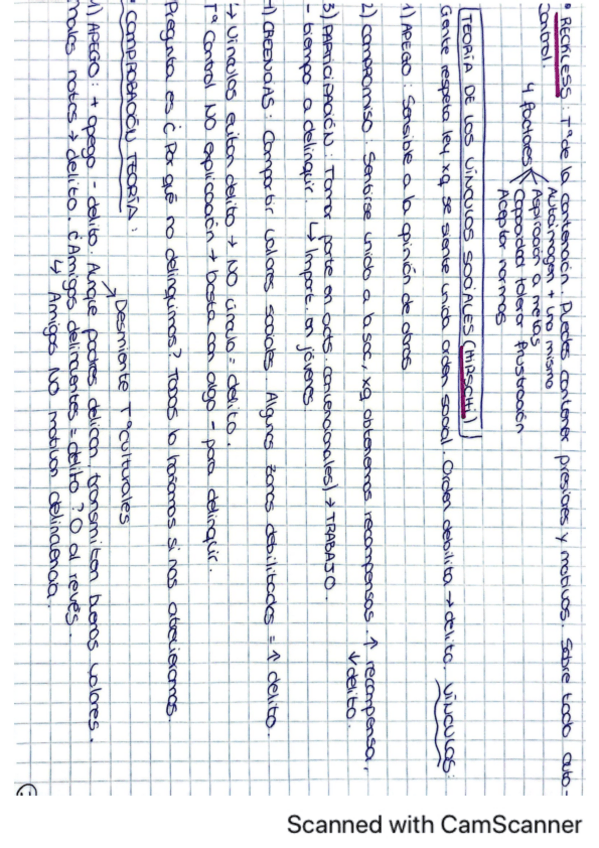 • RECKLESS: Tª de la contención. Puedes contener presiones y motivos. Sobre todo auto-
control.
4 factores
Autoimagen + uno mismo
Aspiración a metas
Capacidad tolerar frustración
Aceptar normas
TEORÍA DE LOS VÍNCULOS SOCIALES (HIRSCHI)
Gente respeta ley xq se siente unida orden social. Orden debilita → delito. VÍNCULOS:
1) APEGO: Sensible a la opinión de otros
2) COMPROMISO: Sentirse unido a la soc, xq obtenemos recompensas. ↑ recompensa,
↓ delito.
3) PARTICIPACIÓN: Tomar parte en acts. convencionales) → TRABAJO.
- tiempo a delinquir. ↳ Import. en jóvenes
4) CREENCIAS: Compartir valores sociales. Algunas zonas debilitadas = ↑ delito.
↳ Vínculos evitan delito → NO vínculo = delito.
Tª Control NO explicación → basta con algo - para delinquir.
Pregunta es ¿Por qué no delinquimos? Todos lo haríamos si nos atreviéramos.
• COMPROBACIÓN TEORÍA:
↗ Desmiente Tª culturales
1) APEGO: + apego - delito. Aunque padres delican, transmiten buenos valores.
malas notas → delito. ¿Amigos delincuentes = delito? O al revés.
↳ Amigos NO motivan delincuencia.
Scanned with CamScanner